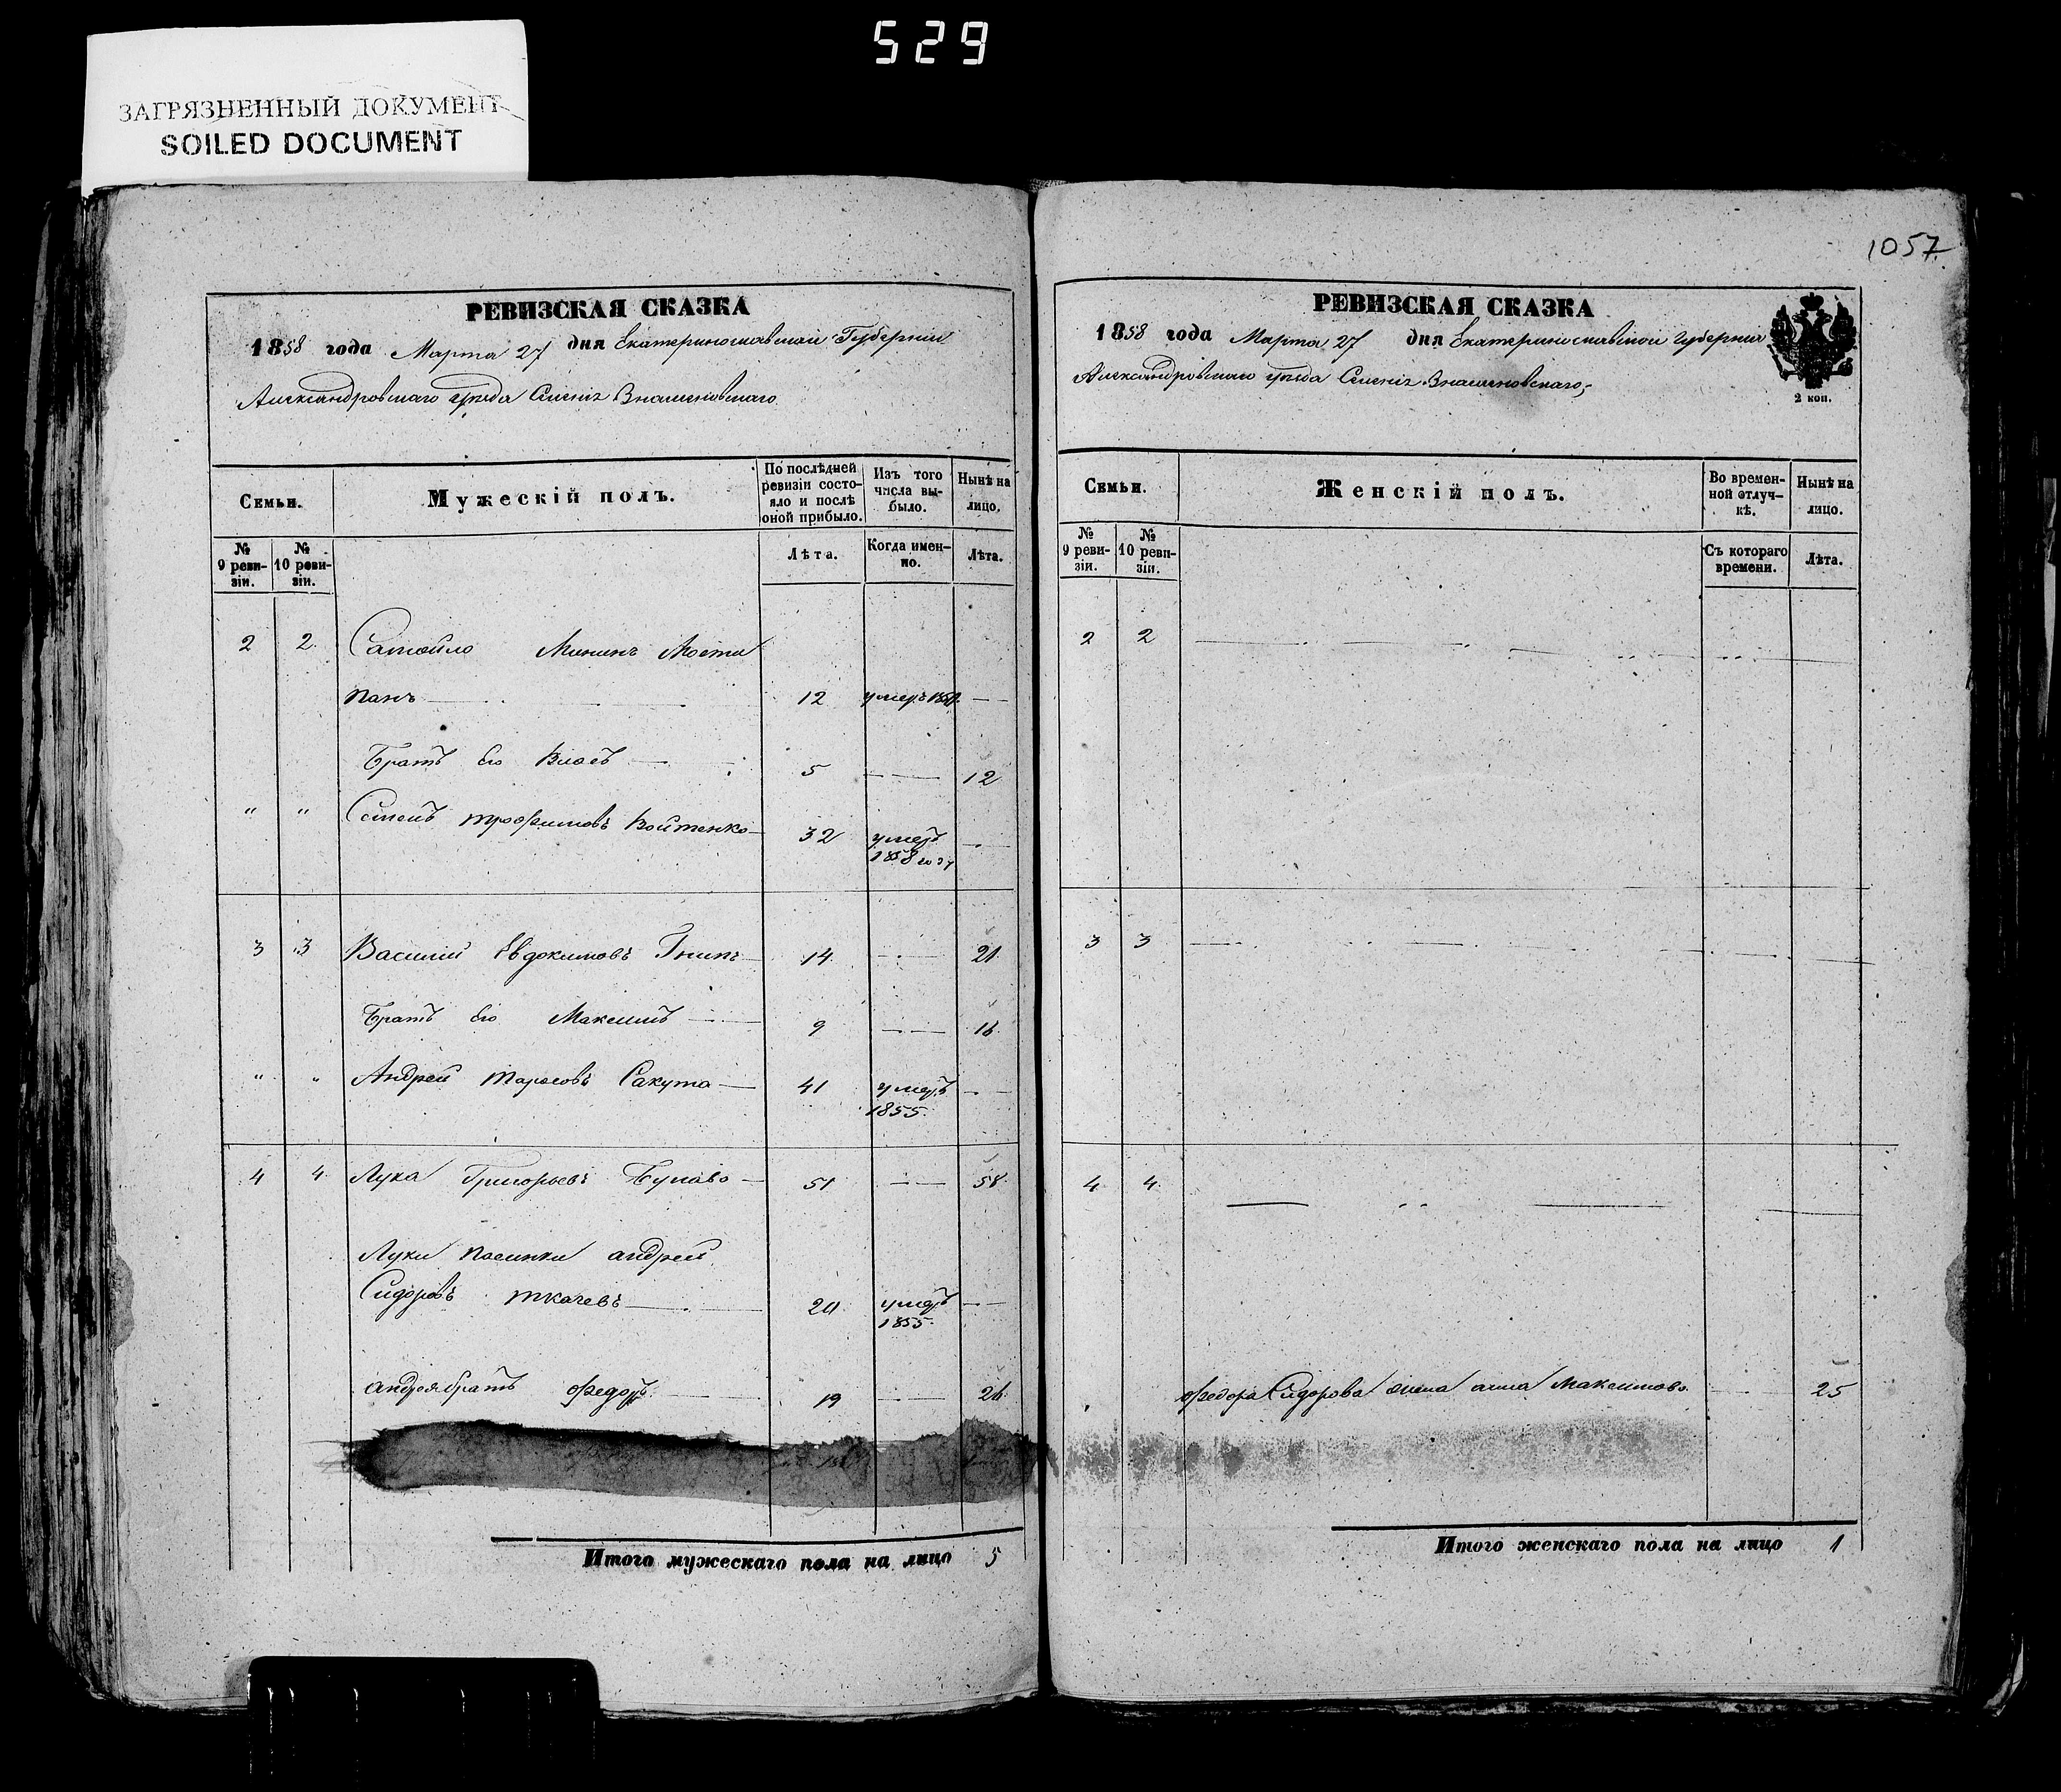 529
ЗАГРЯЗНЕННЫЙ ДОКУМЕНТ
SOILED DOCUMENT
РЕВИЗСКАЯ СКАЗКА
1858 года Марта 27 дня Екатеринославской Губернии
Александровскаго уѣзда Селенія Знаменовскаго
Семьи.
Мужескій полъ.
По послѣдней ревизіи состояло и послѣ оной прибыло.
Изъ того числа выбыло.
Нынѣ на лицо.
№ 9 ревизіи.
№ 10 ревизіи.
Лѣта.
Когда именно.
Лѣта.
2 2 Самойло Мининъ Мости
панъ 12 умеръ —
Братъ Его Власъ 5 — 12
" " Семенъ трофимовъ Войтенко 32 умеръ —
1858 году
3 3 Василий Евдокимовъ Гнипъ 14 — 21
Братъ Его Максимъ 9 — 16
" " Андрей тарасовъ Сакута 41 умеръ —
1855.
4 4 Лука Григорьевъ 51 — 58
Луки пасинки андрей
Сидоровъ ткачевъ 20 умеръ —
1855.
андрея братъ федоръ 19 — 26
Итого мужескаго пола на лицо 5
1057.
РЕВИЗСКАЯ СКАЗКА
1858 года Марта 27 дня Екатеринославской Губернии
Александровскаго уѣзда Селенія Знаменовскаго
2 коп.
Семьи.
Женскій полъ.
Во временной отлучкѣ.
Нынѣ на лицо.
№ 9 ревизіи.
№ 10 ревизіи.
Съ котораго времени.
Лѣта.
2 2
3 3
4 4
федора Сидорова жена анна Максимова — 25
Итого женскаго пола на лицо 1